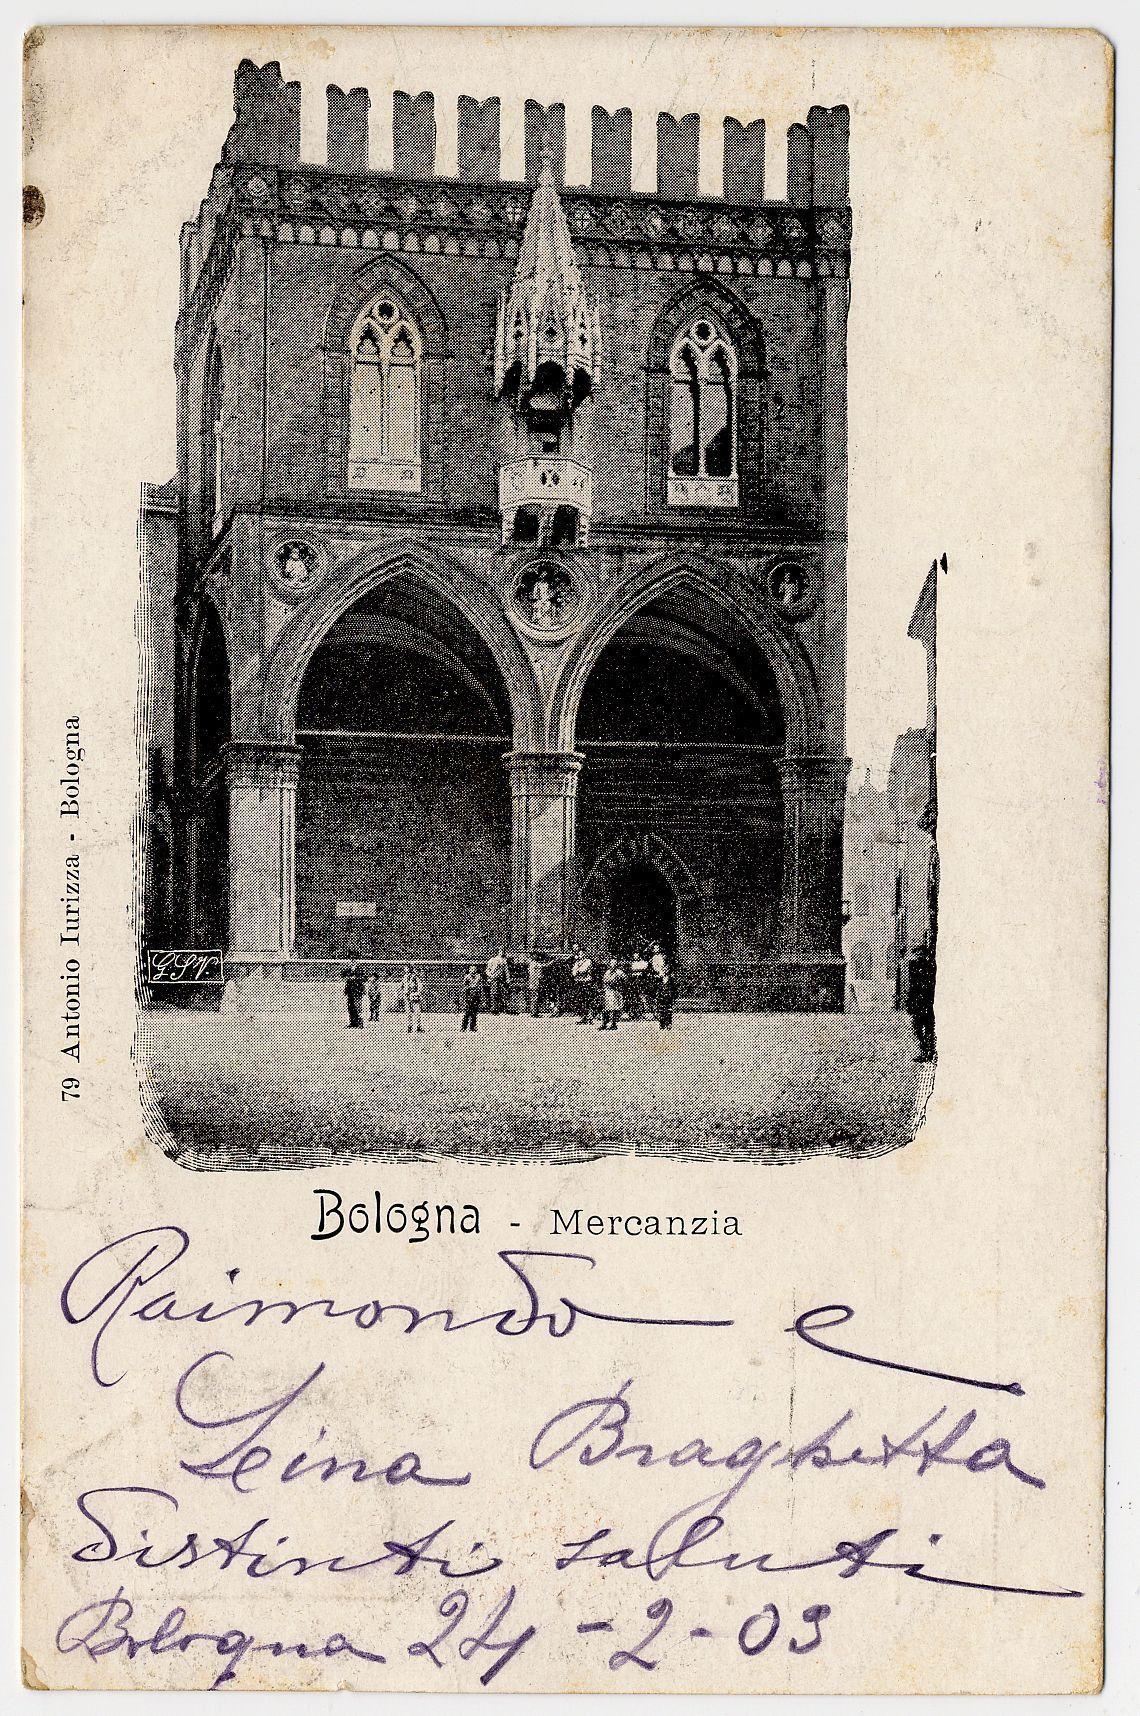 79 Antonio Iurizza - Bologna
G.S.V.
Bologna - Mercanzia
Raimondo e
Lina Braghetta
distinti saluti
Bologna 24-2-03